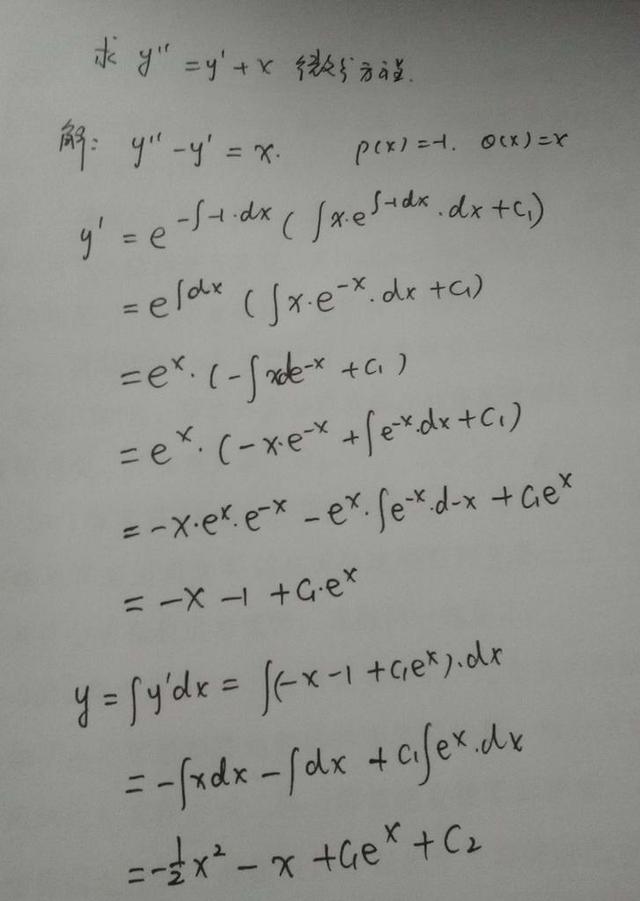 求 y'' = y' + x 微分方程.
解: y'' - y' = x. P(x) = -1. Q(x) = x
y' = e^{-∫-1·dx} (∫x·e^{∫-1dx}·dx + C₁)
= e^{∫dx} (∫x·e^{-x}·dx + C₁)
= e^x·(-∫xde^{-x} + C₁)
= e^x·(-x·e^{-x} + ∫e^{-x}·dx + C₁)
= -x·e^x·e^{-x} - e^x·∫e^{-x}·d-x + C₁e^x
= -x - 1 + C₁·e^x
y = ∫y'dx = ∫(-x - 1 + C₁e^x)·dx
= -∫xdx - ∫dx + C₁∫e^x·dx
= -½x² - x + C₁e^x + C₂